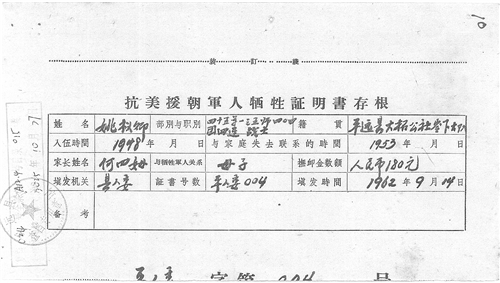 装 訂 綫
抗美援朝軍人牺牲証明書存根
姓名 姚叔卿 部別与职別 四十五軍一三五师四〇四团四連 战士 籍貫 平远县大柘公社岑下大队
入伍時間 1948 年 月 日 与家庭失去联系的時間 1953 年 月 日
家长姓名 何四妹 与牺牲軍人关系 母子 撫卹金数額 人民币180元
填发机关 县人委 証書号数 平人委004 填发時間 1962 年 9 月 14 日
备考
2015年10月27
字第 004 号